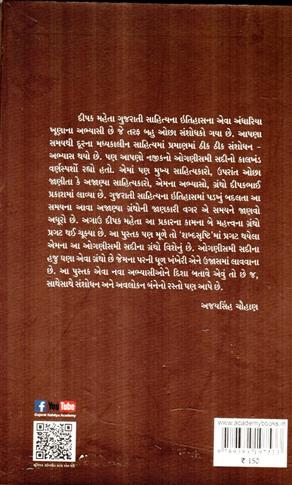 દીપક મહેતા ગુજરાતી સાહિત્યના ઇતિહાસના એવા અંધારિયા
ખૂણાના અભ્યાસી છે જે તરફ બહુ ઓછા સંશોધકો ગયા છે. આપણા
સમયથી દૂરના મધ્યકાલીન સાહિત્યમાં પ્રમાણમાં ઠીક ઠીક સંશોધન -
અભ્યાસ થયો છે. પણ આપણો નજીકનો ઓગણીસમી સદીનો કાલખંડ
વણસ્પર્શ્યો રહ્યો હતો. એમાં પણ મુખ્ય સાહિત્યકારો, ઉપરાંત ઓછા
જાણીતા કે અજાણ્યા સાહિત્યકારો, એમના અભ્યાસો, ગ્રંથો દીપકભાઈ
પ્રકાશમાં લાવ્યા છે. ગુજરાતી સાહિત્યના ઇતિહાસમાં પડખું બદલતા આ
સમયના આવા અજાણ્યા ગ્રંથોની જાણકારી વગર એ સમયને જાણવો
અધૂરો છે. અગાઉ દીપક મહેતા આ પ્રકારના કામના બે મહત્ત્વના ગ્રંથો
પ્રગટ થઈ ચૂક્યા છે. આ પુસ્તક પણ મુળે તો 'શબ્દસૃષ્ટિ'માં પ્રગટ થયેલા
એમના આ ઓગણીસમી સદીના ગ્રંથો વિશેનું છે. ઓગણીસમી સદીના
હજુ ઘણા એવા ગ્રંથો છે જેમના પરની ધૂળ ખંખેરી એને ઉજાસમાં લાવવાના
છે. આ પુસ્તક એવા નવા અભ્યાસીઓને દિશા બતાવે એવું તો છે જ,
સાથેસાથે સંશોધન અને અવલોકન બંનેનો રસ્તો પણ આપે છે.
અજયસિંહ ચૌહાણ
f YouTube
Gujarat Sahitya Academy
www.academybooks.in
₹ 150